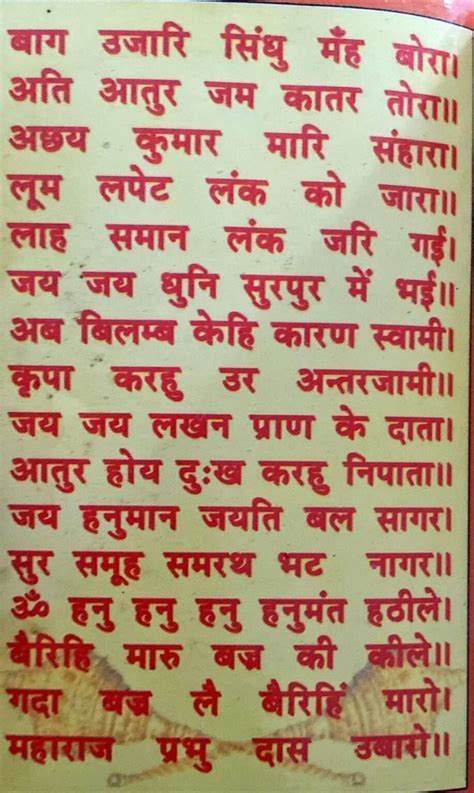 बाग उजारि सिंधु मँह बोरा।
अति आतुर जम कातर तोरा॥
अछय कुमार मारि संहारा।
लूम लपेट लंक को जारा॥
लाह समान लंक जरि गई।
जय जय धुनि सुरपुर में भई॥
अब बिलम्ब केहि कारण स्वामी।
कृपा करहु उर अन्तरजामी॥
जय जय लखन प्राण के दाता।
आतुर होय दुःख करहु निपाता॥
जय हनुमान जयति बल सागर।
सुर समूह समरथ भट नागर॥
ॐ हनु हनु हनु हनुमंत हठीले।
बैरिहि मारु बज्र की कीले॥
गदा बज्र लै बैरिहिं मारो।
महाराज प्रभु दास उबारो॥